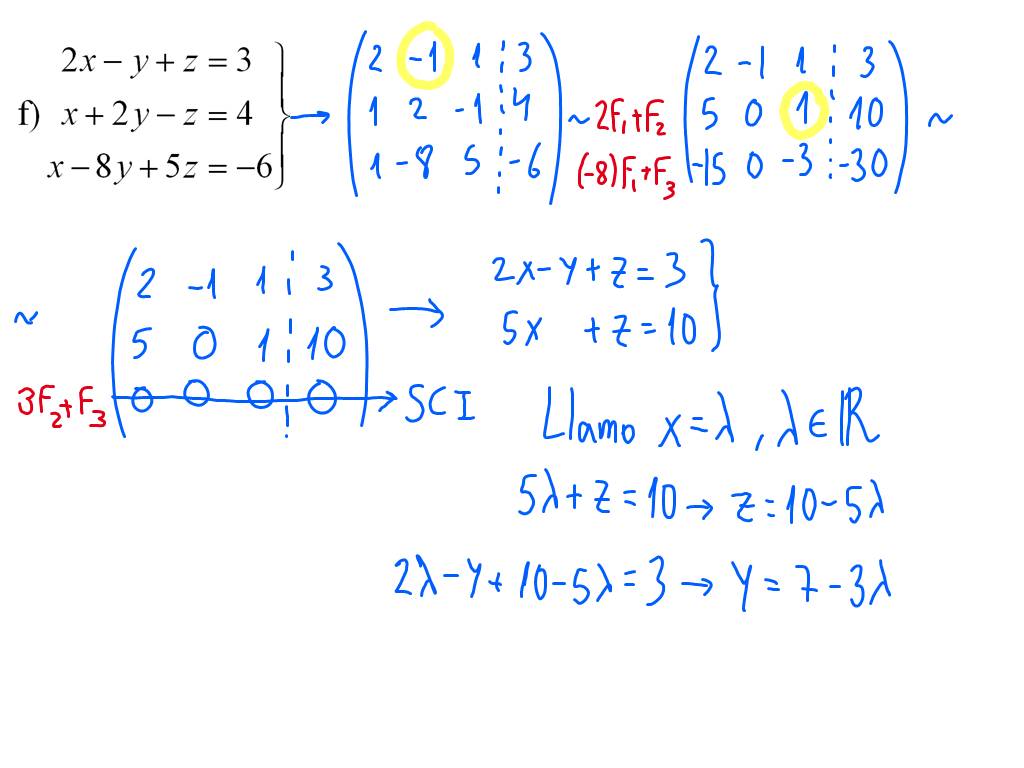 f) 2x − y + z = 3
x + 2y − z = 4
x − 8y + 5z = −6
→
2 -1 1 3
1 2 -1 4
1 -8 5 -6
~ 2F₁+F₂
(-8)F₁+F₃
2 -1 1 3
5 0 1 10
-15 0 -3 -30
~
~
3F₂+F₃
2 -1 1 3
5 0 1 10
0 0 0 0
→ SCI
→
2x-y+z=3
5x +z=10
Llamo x=λ, λ∈ℝ
5λ+z=10 → z=10-5λ
2λ-y+10-5λ=3 → y=7-3λ